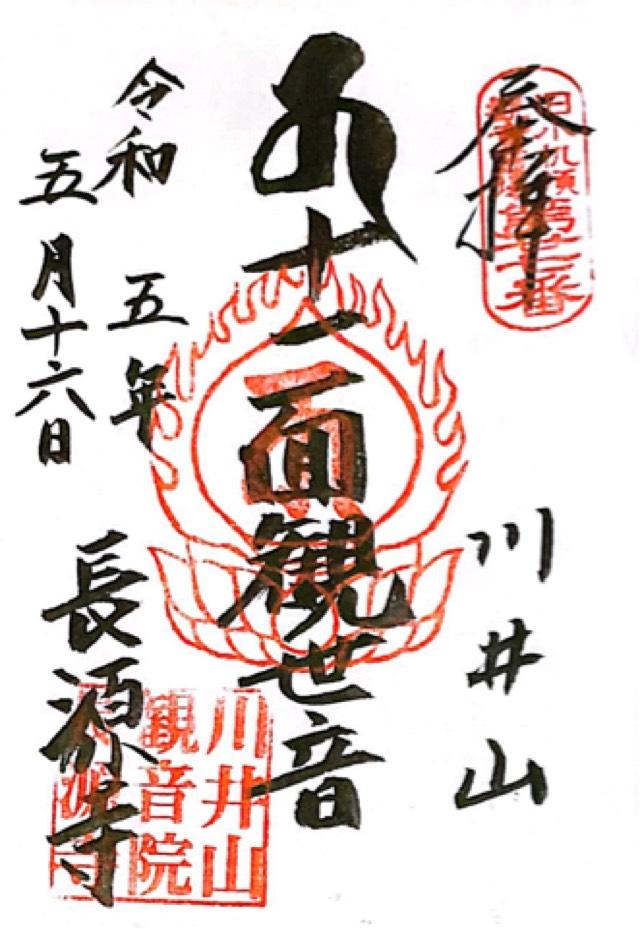 奉拝
川井山
十一面観世音
令和五年
五月十六日
長源寺
川井山
観音院
長源寺